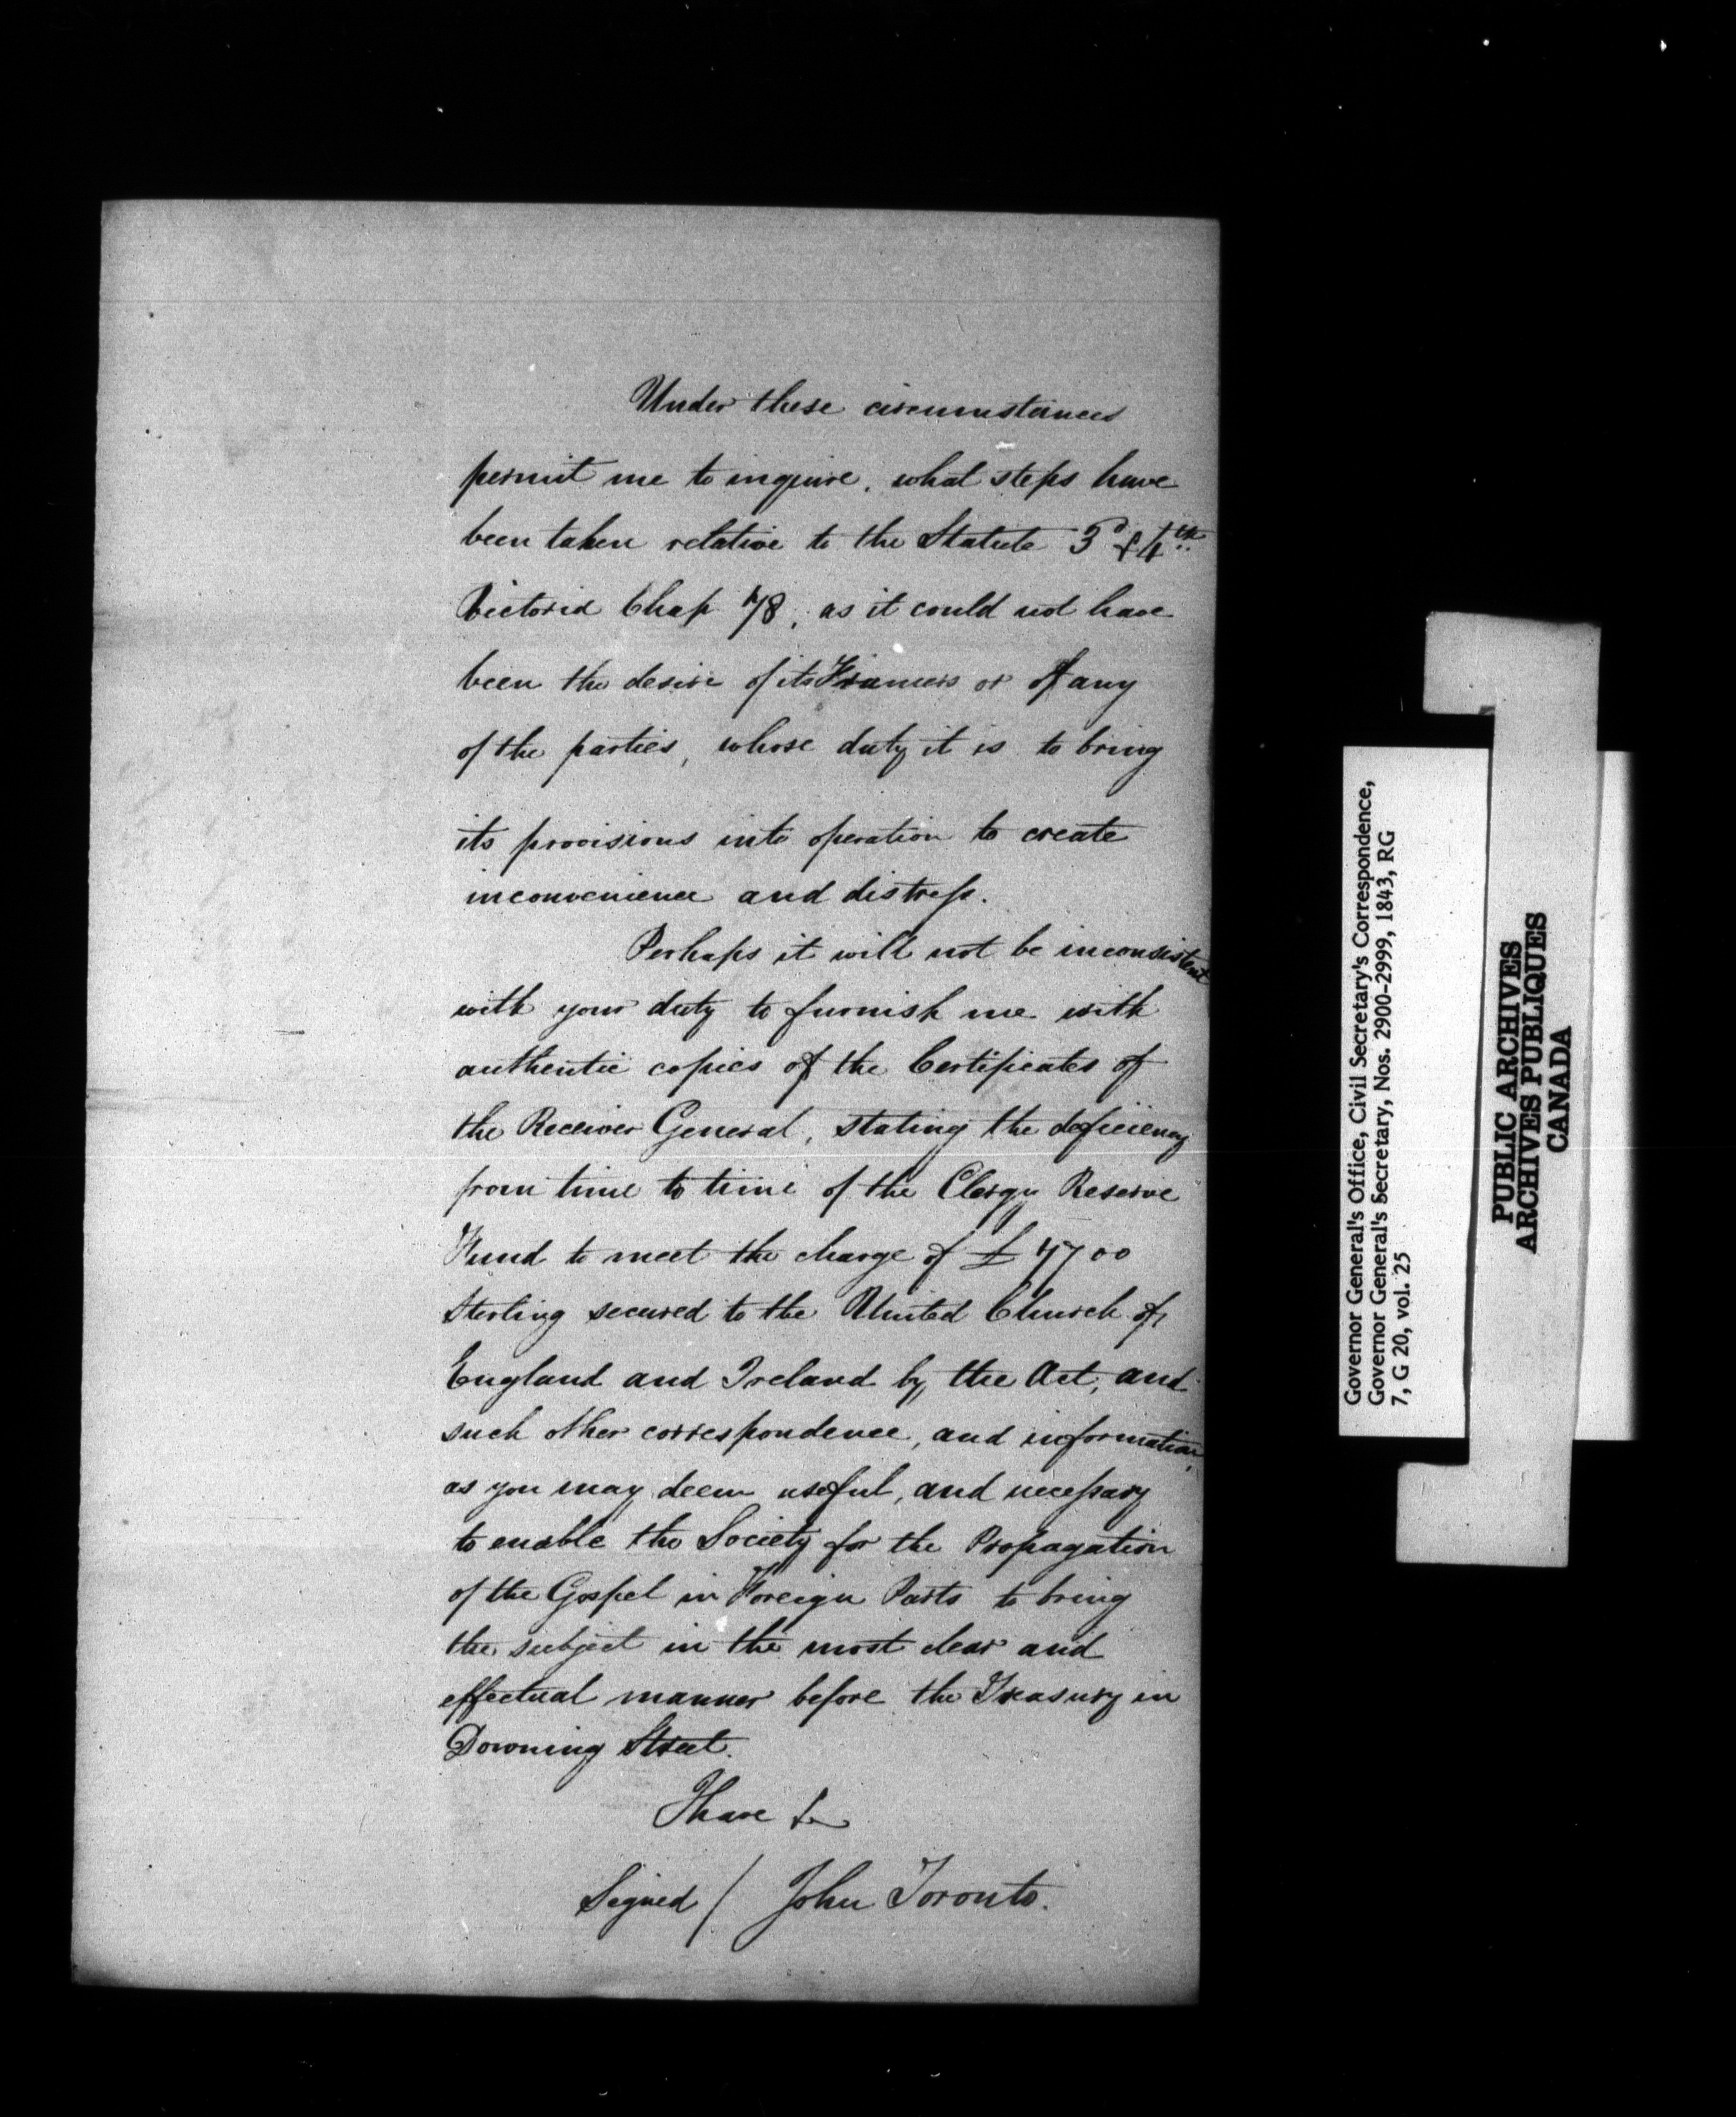 Under these circumstances
permit me to inquire, what steps have
been taken relative to the Statute 3d & 4th
Victoria Chap 78, as it could not have
been the desire of its Framers or of any
of the parties, whose duty it is to bring
its provisions into operation to create
inconvenience and distress.
Perhaps it will not be inconsistent
with your duty to furnish me with
authentic copies of the Certificates of
the Receiver General, stating the deficiency
from time to time of the Clergy Reserve
Fund to meet the charge of £7700
Sterling secured to the United Church of
England and Ireland by the Act, and
such other correspondence, and information,
as you may deem useful, and necessary
to enable the Society for the Propagation
of the Gospel in Foreign Parts to bring
the subject in the most clear and
effectual manner before the Treasury in
Downing Street.
I have &c
Signed / John Toronto.
Governor General's Office, Civil Secretary's Correspondence,
Governor General's Secretary, Nos. 2900-2999, 1843, RG
7, G 20, vol. 25
PUBLIC ARCHIVES
ARCHIVES PUBLIQUES
CANADA